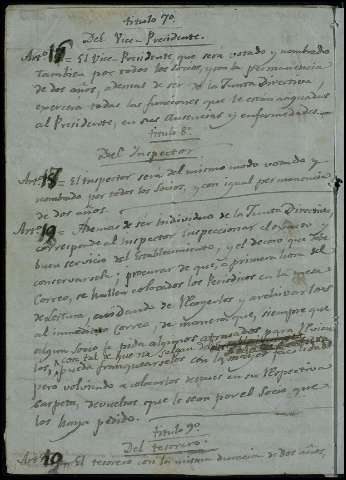 titulo 7º.
Del Vice-Presidente.
Artº. 16 = El Vice-Presidente, que será votado y nombrado
tambien por todos los Socios, y con la permanencia
de dos años, ademas de ser de la Junta Directiva
exercera todas las funciones que le estan
al Presidente, en sus Ausencias y enfermedades.
titulo 8º.
Del Inspector.
Artº. 17 = El Inspector será del mismo modo votado y
nombrado por todos los Socios, y con igual permanencia
de dos años.
Artº. 18 = Ademas de ser Individuo de la Junta Directiva,
corresponde al Inspector inspeccionar el
buen servicio del Establecimiento, y el decoro que debe
conservarse; procurar de que, a primera hora del
Correo, se hallen colocados los Periodicos en la mesa
de Lectura, cuidando de Recogerlos y archivarlos
al inmediato Correo, de manera que, siempre que
algun Socio le pida algunos atrasados para
con tal que no salgan
pueda franquearselos con la mayor facilidad
pero volviendo a colocarlos despues en su Respectiva
Carpeta, devueltos que le sean por el Socio que
los haya pedido.
titulo 9º.
Del tesorero.
Artº. 19 = El tesorero con la misma duracion de dos años,